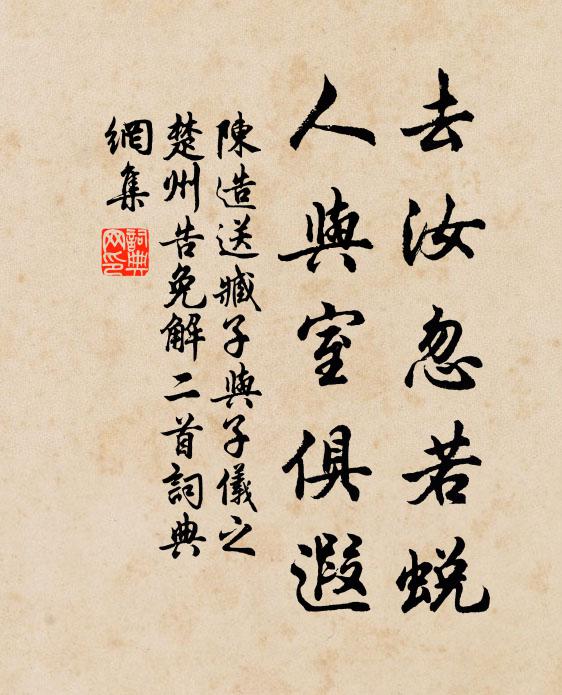 去汝忽若蜕
人與室俱遐
陳造送臧子與子儀之
楚州告免解二首詞典
網集
詞典
网印